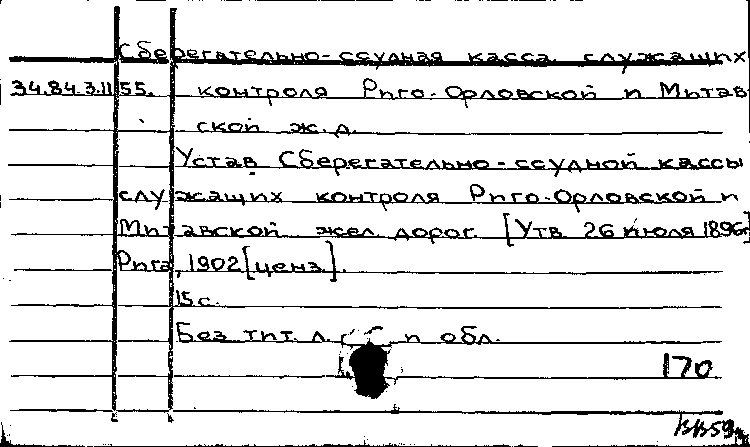 Сберегательно-ссудная касса служащих
34.84.3.11 55. контроля Риго-Орловской и Митав
ской ж.д.
Устав Сберегательно-ссудной кассы
служащих контроля Риго-Орловской и
Митавской жел. дорог. [Утв. 26 июля 1896г.]
Рига, 1902 [ценз.].
15 с.
Без тит. л. и обл.
170